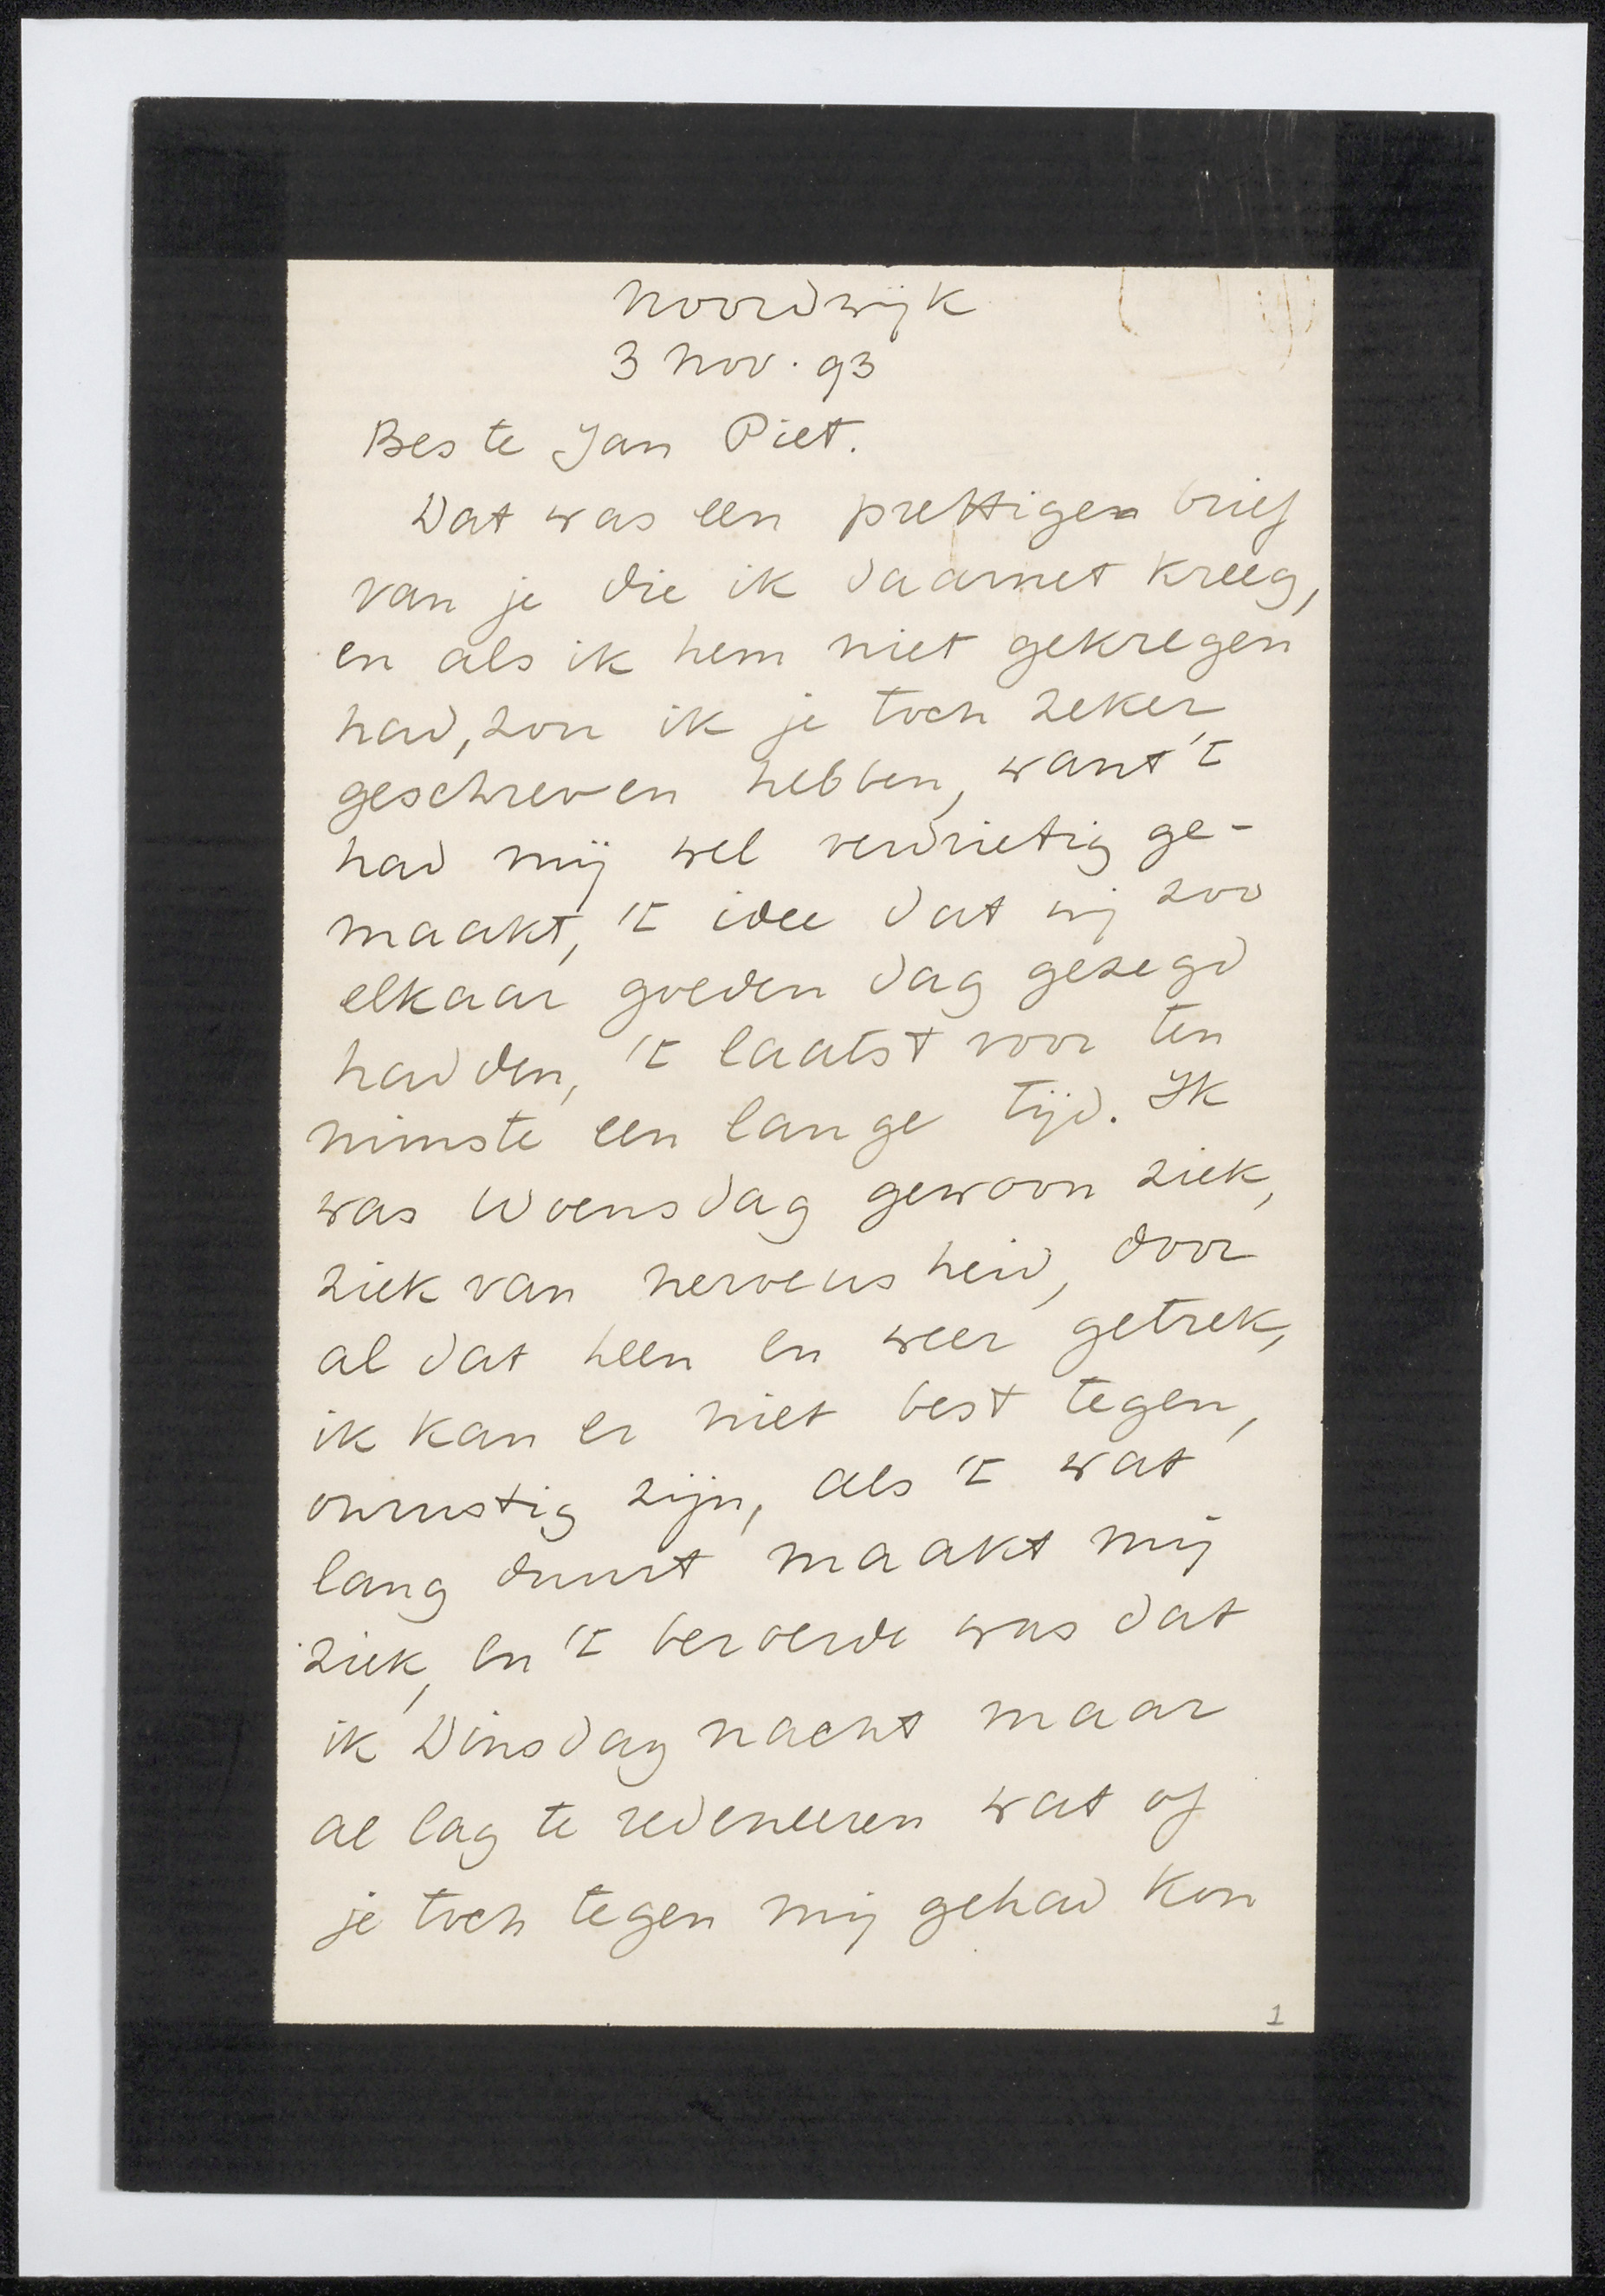 Noordwijk
3 Nov. 93
Beste Jan Piet.
Dat was een prettigen brief
van je die ik daarnet kreeg,
en als ik hem niet gekregen
had, zou ik je toch zeker
geschreven hebben, want 't
had mij wel verdrietig ge-
maakt, 't idee dat wij zoo
elkaar goeden dag gezegd
hadden, 't laatst voor ten
minste een lange tijd. Ik
was Woensdag gewoon ziek,
ziek van nerveusheid, door
al dat heen en weer getrek,
ik kan er niet best tegen,
onrustig zijn, als 't wat
lang duurt maakt mij
ziek, en 't beroerde was dat
ik Dinsdag nacht maar
al lag te redeneeren wat of
je toch tegen mij gehad kon
1